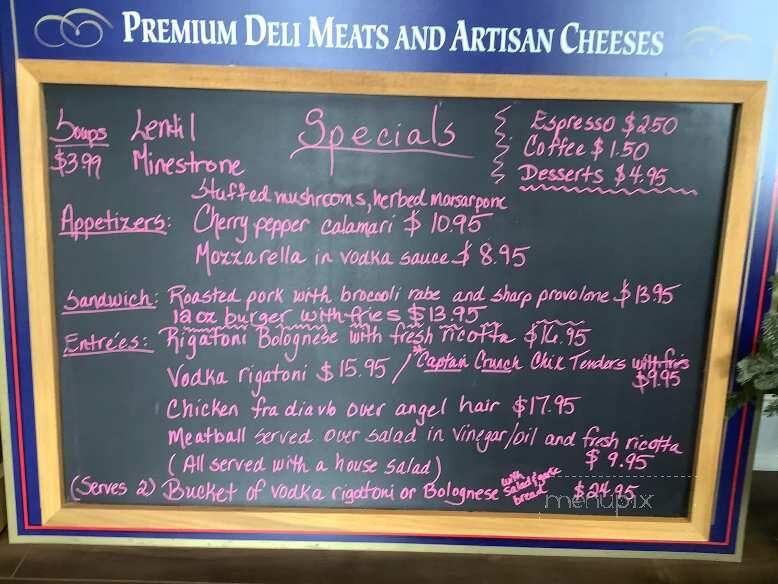 PREMIUM DELI MEATS AND ARTISAN CHEESES
Soups Lentil
$3.99 Minestrone
Specials
Espresso $2.50
Coffee $1.50
Desserts $4.95
Stuffed mushrooms, herbed marsarpone
Appetizers: Cherry pepper calamari $10.95
Mozzarella in vodka sauce $8.95
Sandwich: Roasted pork with broccoli rabe and sharp provolone $13.95
12oz burger with fries $13.95
Entrées: Rigatoni Bolognese with fresh ricotta $16.95
Vodka rigatoni $15.95 / *Captain Crunch Chik Tenders with fries
$9.95
Chicken fra diavlo over angel hair $17.95
Meatball served over salad in vinegar/oil and fresh ricotta
(All served with a house salad) $9.95
(Serves 2) Bucket of vodka rigatoni or Bolognese with salad & garlic bread $24.95
menupix